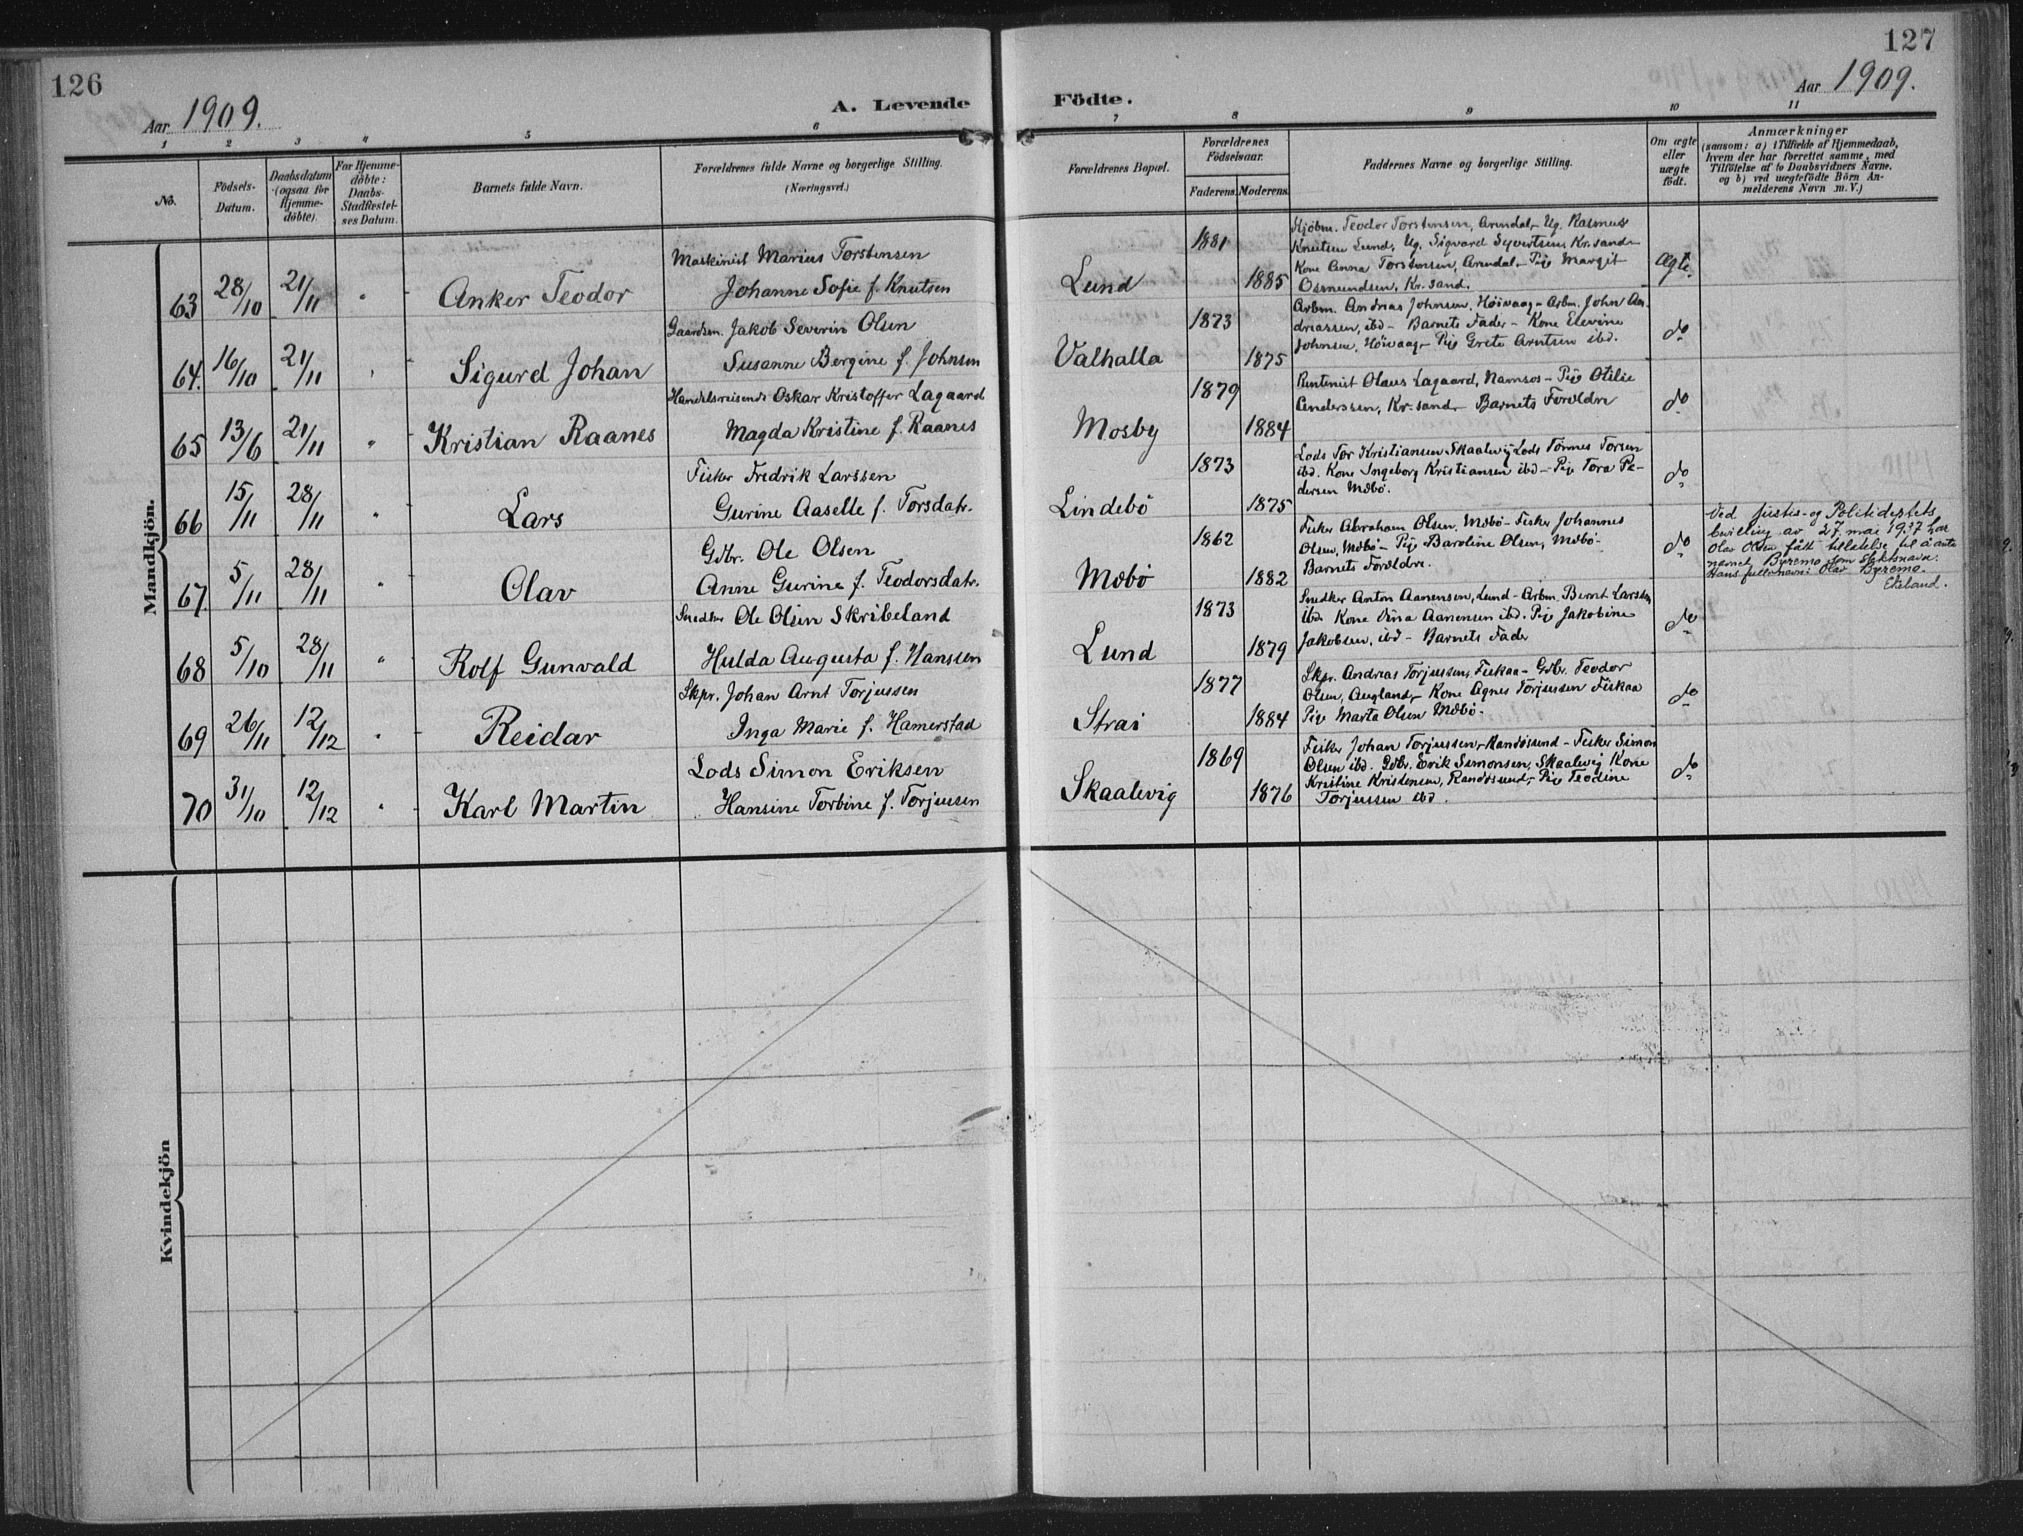 126
Aar 1909.
A. Levende
Födte.
Aar 1909.
127
1
2
3
4
5
6
7
8
9
10
11
No.
Födsels-
Datum.
Daabsdatum
(ogsaa for
Hjemme-
döbte).
For Hjemme-
döbte:
Daabs-
Stadfæstel-
ses Datum.
Barnets fulde Navn.
Forældrenes fulde Navne og borgerlige Stilling.
(Næringsvei.)
Forældrenes Bopæl.
Forældrenes
Födselsaar.
Faderens.
Moderens.
Faddernes Navne og borgerlige Stilling.
Om ægte
eller
uægte
födt.
Anmærkninger
(saasom: a) i Tilfælde af Hjemmedaab,
hvem der har forrettet samme, med
Tilföielse af to Daabsvidners Navne,
og b) ved uægtefödte Börn An-
melderens Navn m. V.)
Mandkjön.
63 28/10 21/11 " Anker Teodor
Maskinist Marius Torstensen
Johanne Sofie f. Knutsen
Lund 1881 1885
Teodor Torstensen, Arendal, Ug. Rasmus
Knutsen Lund, Ug. Sigvard Syvertsen, Kr.sand-
Kone Anna Torstensen, Arendal, Pige Margit
Osmundsen, Kr.sand.
Ægte.
64. 16/10 21/11 " Sigurd Johan
Gaardm. Jakob Severin Olsen
Susanne Bergine f. Johnsen
Valhalla 1873 1875
Arbm. Andreas Johnsen, Höivaag - Arbm. John An-
dreassen, ibd - Barnets Fader - Kone Elevine
Johnsen, Höivaag - Pige Grete Arntsen ibd.
do
65 13/6 21/11 " Kristian Raanes
Handelsreisende Oskar Kristoffer Lagaard
Magda Kristine f. Raanes
Mosby 1879 1884
Rentenist Olaus Lagaard, Namsos - Pige Otilie
Anderssen, Kr.sand - Barnets Forældre
do
66 15/11 28/11 " Lars
Fisker Fredrik Larssen
Gurine Aaselle f. Torsdatr.
Lindebö 1873 1875
Lods Tor Kristiansen Skaalevig Lods Tönnes Torsen
ibd. Kone Ingeborg Kristiansen ibd - Pige Tora Pe-
dersen Mæbö.
do
67. 5/11 28/11 " Olav
Gdbr. Ole Olsen
Anne Gurine f. Teodorsdatr.
Mæbö 1862 1882
Fisker Abraham Olsen, Mæbö - Fisker Johannes
Olsen, Mæbö - Pige Baroline Olsen, Mæbö -
Barnets Forældre.
do
Ved Justis- og Politideptets
bevilling av 27. mai 1937 har
Olav Olsen fått tillatelse til å anta
navnet Byremo som slektsnavn.
Hans fulle navn: Olav Byremo.
Ekeland.
68 5/10 28/11 " Rolf Gunvald
Snedker Ole Olsen Skribeland
Hulda Augusta f. Hanssen
Lund 1873 1879
Snedker Anton Aanensen, Lund - Arbm. Bernt Larssen
ibd Kone Aanensen ibd. Pige Jakobine
Jakobsen, ibd - Barnets Fader
do
69 26/11 12/12 " Reidar
Skpr. Johan Arnt Torjussen
Inga Marie f. Hamerstad
Strai 1877 1884
Skpr. Andreas Torjussen, Fiskaa - Gdbr. Teodor
Olsen, Augland, - Kone Agnes Torjussen Fiskaa
Pige Marta Olsen Mæbö.
do
70 31/10 12/12 " Karl Martin
Lods Simon Eriksen
Hansine Torbine f. Torjussen
Skaalevig 1869 1876
Fisker Johan Torjussen, Randösund - Fisker Simon
Olsen ibd. Gdbr. Erik Simonsen, Skaalevig Kone
Kristine Kristensen, Randösund, - Pige Teodine
Torjussen ibd.
do
Kvindekjön